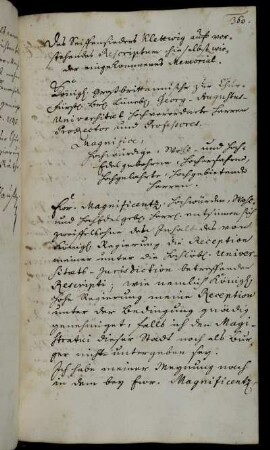 380.
Des Seiffensieders Klettwig auf vor-
stehendes Rescriptum hieselbst wie-
der eingekommenes Memorial.
Königl. Großbritannische zur Chur-
Braunschw. Lüneb. Georg-Augustus-
Universität Hochverordnete Herren
Prorector und Professores.
Magnifice,
Hochwürdige, Wohl- und Hoch-
Edelgebohrne, Hocherfahrne,
Hochgelahrte, Hochgebietende
Herren.
Ew. Magnificentz, Hochwürden, Wohl-
und Hochedelgeb. Herrl. entsinnen sich
zweiffelsohne des Inhalts des von
Königl. Regierung die Reception
meiner unter die Hochlöbl. Univer-
sitäts-Jurisdiction betreffenden
Rescripti; wie nemlich Königl.
hohe Regierung meine Reception
unter der Bedingung gnädig
genehmiget, falls ich dem Magi-
stratui dieser Stadt noch als Bür-
ger nicht untergeben sey.
Ich habe meiner Meynung nach
an dem bey Ew. Magnificentz,